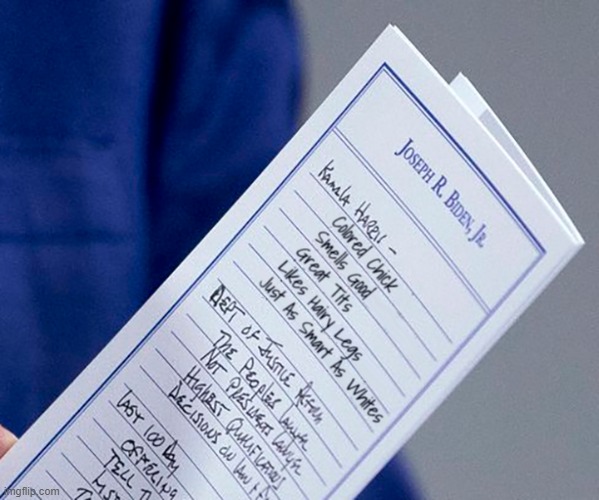 JOSEPH R. BIDEN, JR.
KAMALA HARRIS –
Colored Chick
Smells Good
Great Tits
Likes Hairy Legs
Just As Smart As Whites
DEPT OF JUSTICE
THE PEOPLES
NOT PRESIDENTS
HIGHEST QUALIFICATIONS
DECISIONS ON
LAST 100 DAY
TELL
imgflip.com